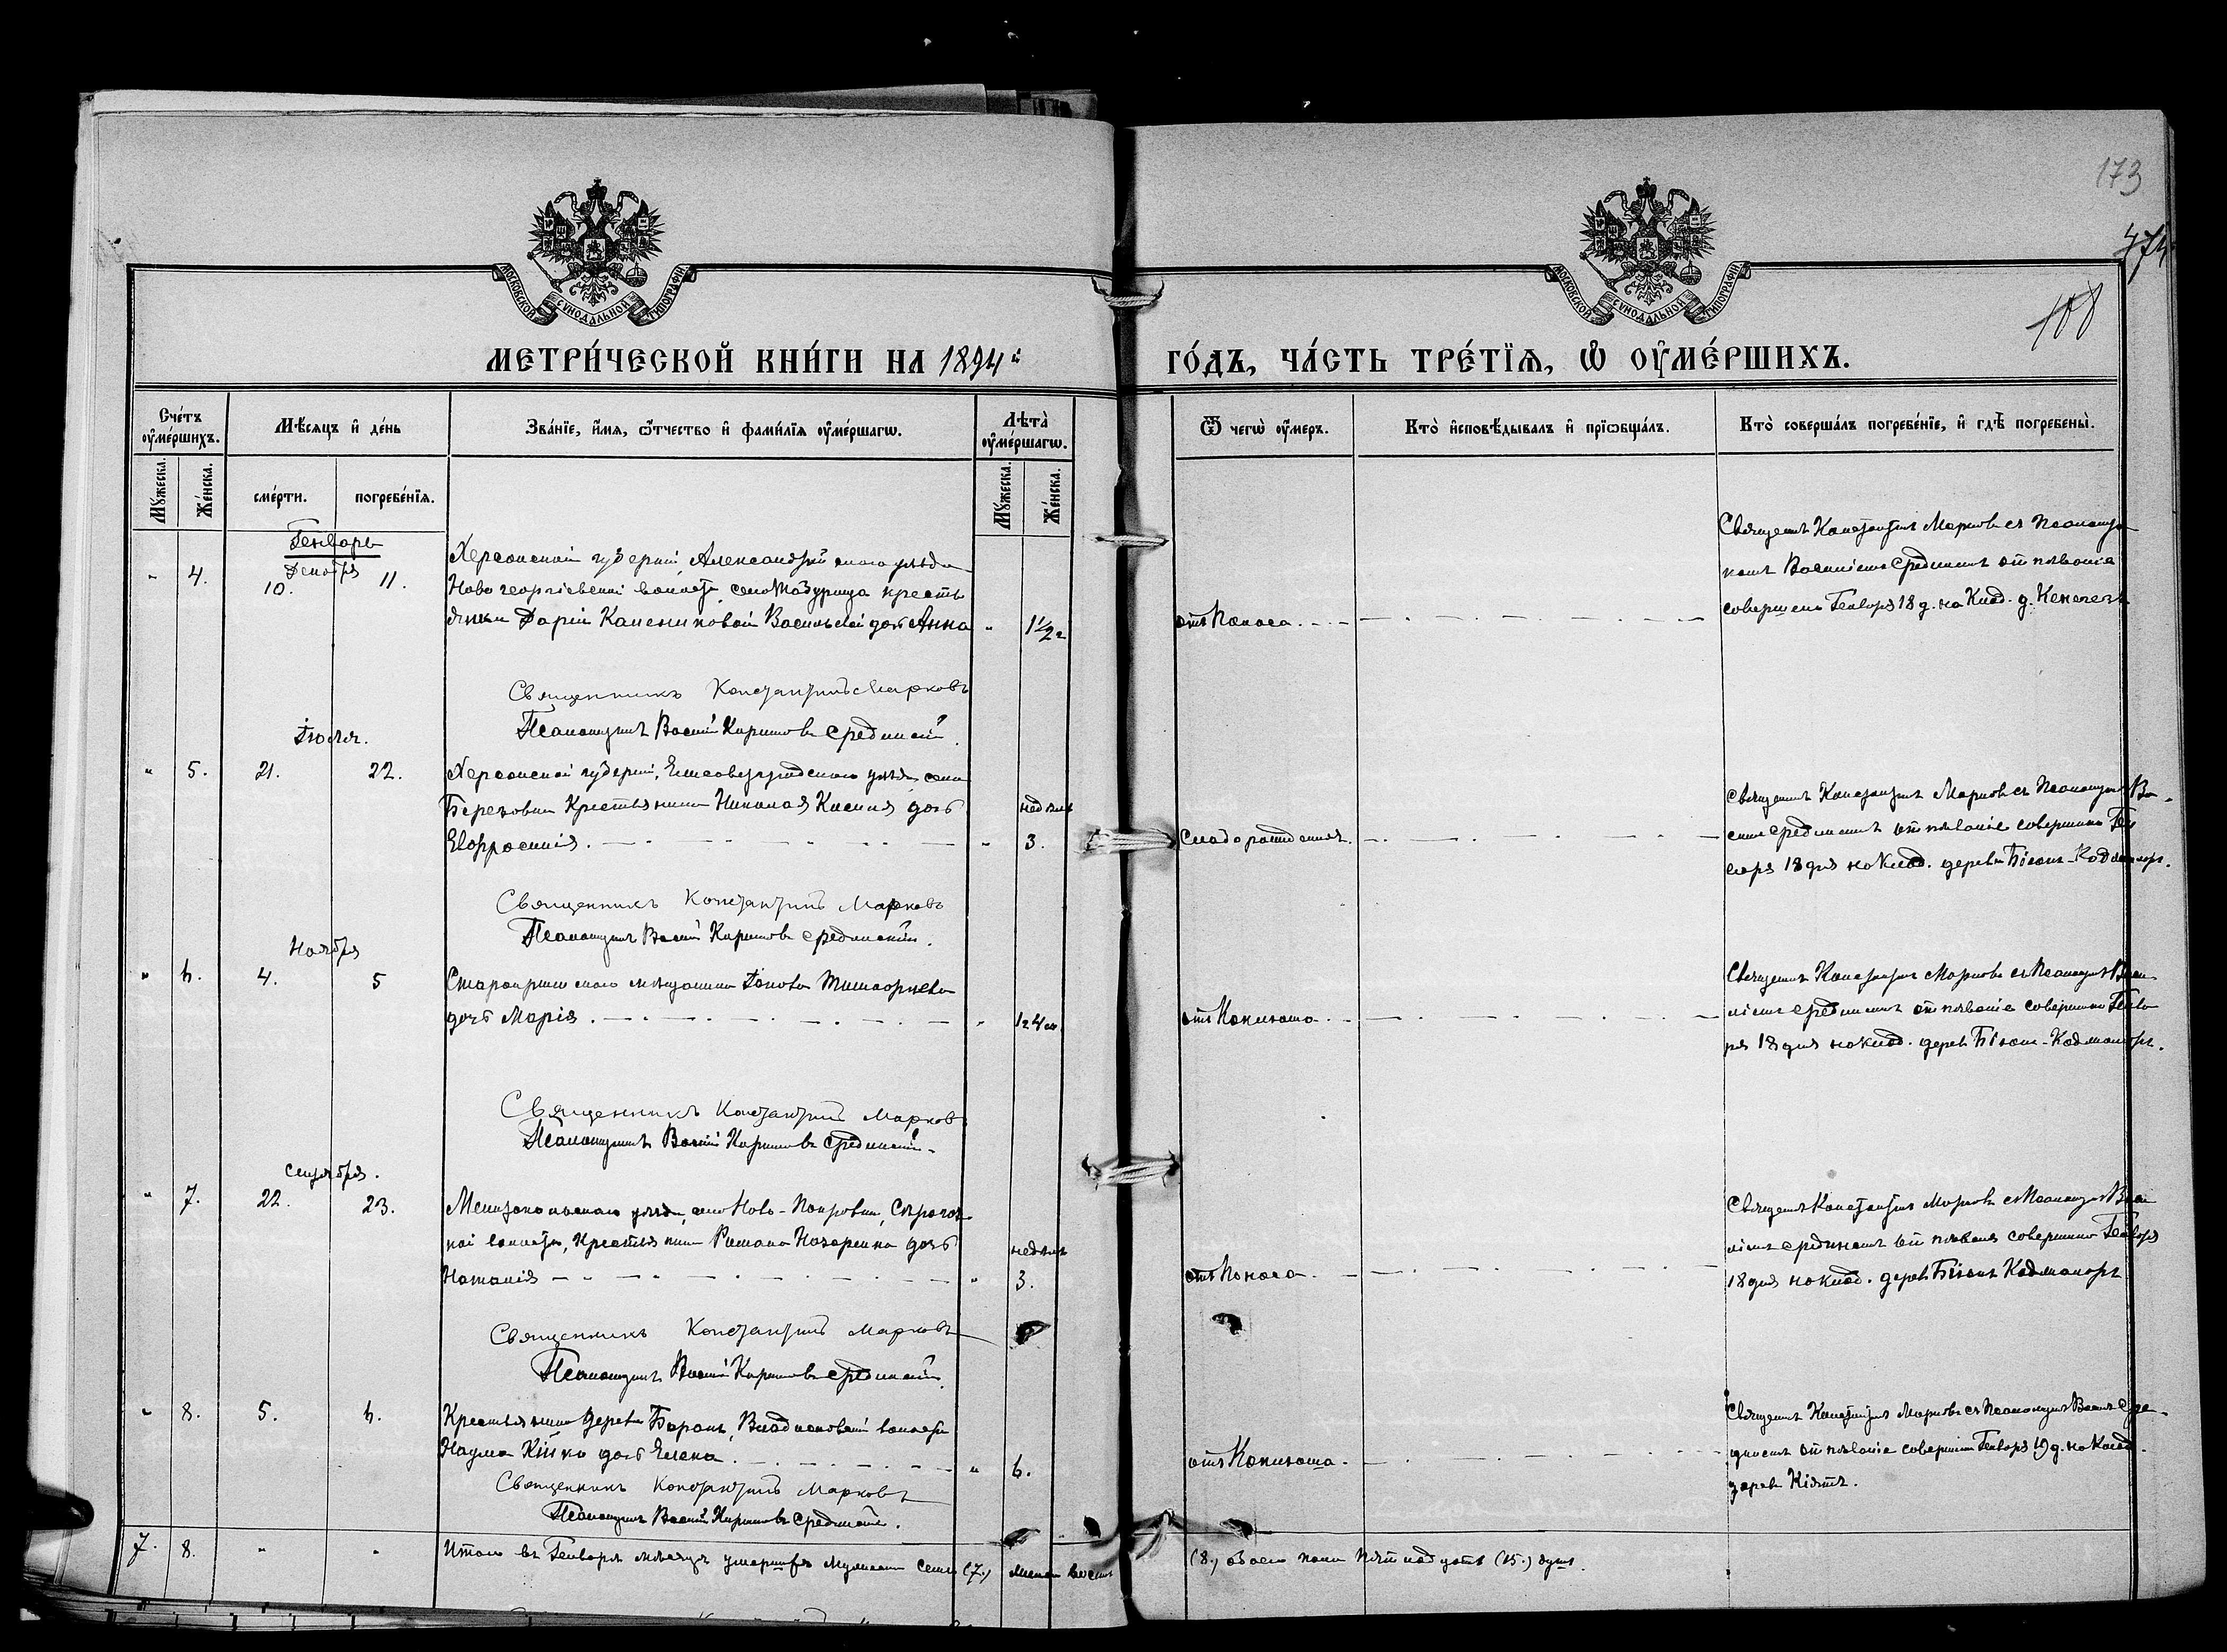 173
474
108
МОСКОВСКОЙ СѴНОДАЛЬНОЙ ТИПОГРАФІИ
МОСКОВСКОЙ СѴНОДАЛЬНОЙ ТИПОГРАФІИ
МЕТРИ́ЧЕСКОЙ КНИ́ГИ НА 1894й
ГО́ДЪ, ЧА́СТЬ ТРЕ́ТЇѦ, Ѡ҆ ОУ҆МЕ́РШИХЪ.
Сче́тъ оу҆ме́ршихъ.
Мѣ́сяцъ и҆ де́нь
Зва́нїе, и҆́мя, ѻ҆́тчество и҆ фами́лїя оу҆ме́ршагѡ.
Лѣта̀ оу҆ме́ршагѡ.
Ѿ чегѡ̀ оу҆́меръ.
Кто̀ и҆сповѣ́дывалъ и҆ прїѡбща́лъ.
Кто̀ соверша́лъ погребе́нїе, и҆ гдѣ̀ погребены̀.
Мꙋ́жеска.
Же́нска.
сме́рти.
погребе́нїя.
Мꙋ́жеска.
Же́нска.
Генварь
Декабря
" 4. 10. 11.
Херсонской губерніи, Александрійскаго уѣзда
Ново георгіевской волости, села Табурища кресть
янки Дарій Калениковой Васильевой дочь Анна " 1½ г
отъ Поноса.
Священникъ Константинъ Марковъ съ Псаломщи
комъ Василіемъ Срединскимъ отпѣваніе
совершено Генваря 18 д. на Клад. д. Кенегезъ
Священникъ Константинъ Марковъ
Псаломщикъ Василій Кириловъ Срединскій
Іюля.
" 5. 21. 22.
Херсонской губерніи, Елисаветградскаго уѣзда, села
Березовки Крестьянина Николая Касиня дочь
Евфросинія. " недѣль 3.
Слаборожденія.
Священникъ Константинъ Марковъ съ Псаломщик Ва
силіемъ Срединскимъ отпѣваніе совершено Ген
варя 18 дня на Клад. деревни Біюкъ-Коджаморъ.
Священникъ Константинъ Марковъ
Псаломщикъ Василій Кириловъ Срединскій.
Ноября
" 6. 4. 5
Старокрымскаго мѣщанина
дочь Марія. " 1г 4 м.
отъ Коклюша.
Священникъ Константинъ Марковъ съ Псаломщик Васи
ліемъ Срединскимъ отпѣваніе совершено Генва
ря 18 дня на клад. дерев. Біюкъ-Коджаморъ.
Священникъ Константинъ Марковъ
Псаломщикъ Василій Кириловъ Срединскій.
Сентября.
" 7. 22. 23.
Мелитопольскаго уѣзда, села Ново-Покровки, Сѣрогоз
кой волости, Крестьянина Романа Назаренка дочь
Наталія " недѣль 3.
отъ Поноса.
Священникъ Константинъ Марковъ съ Псаломщик Васи
ліемъ Срединскимъ отпѣваніе совершено Генваря
18 дня на клад. дерев. Біюкъ Коджаморъ
Священникъ Константинъ Марковъ
Псаломщикъ Василій Кириловъ Срединскій
" 8. 5. 6.
Крестьянина деревни Баракъ, Владиславской волости
Наума Кійка дочь Елена. " 6.
отъ Коклюша.
Священникъ Константинъ Марковъ съ Псаломщик Васил Сре
динскимъ отпѣваніе совершено Генваря 19 д. на Клад.
дерев. Кіятъ.
Священникъ Константинъ Марковъ
Псаломщикъ Василій Кириловъ Срединскій.
7. 8. " "
Итого въ Генварѣ мѣсяцѣ умершихъ мужеска семь (7.) женска восемь
(8.) обоего пола пятнадцать (15.) душъ.